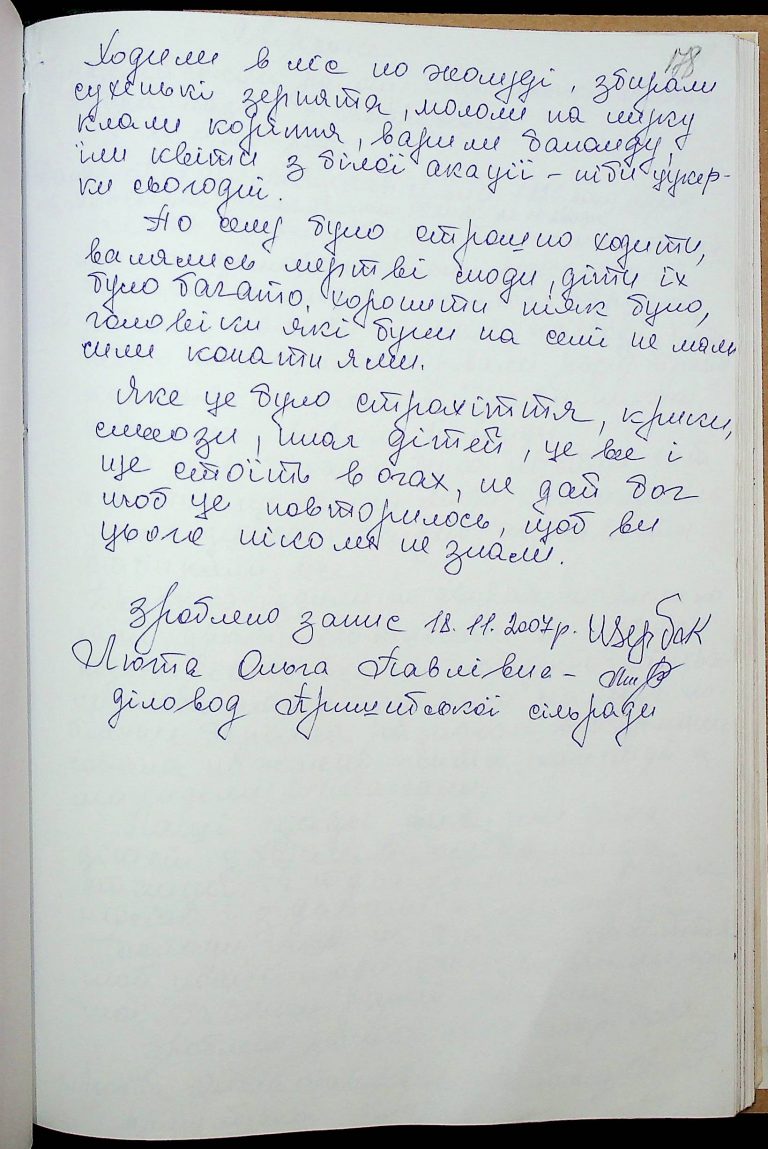 178
Ходили в ліс по жолуді, збирали
сухенькі зернята, мололи на муку
клали коріння, варили баланду,
їли квіти з білої акації – ніби цукер-
ки сьогодні.
По селу було страшно ходити,
валялись мертві люди, діти їх
було багато, хоронити ніяк було,
чоловіки які були на селі не мали
сили копати ями.
Яке це було страхіття, крики,
сльози, плач дітей, це все і
ще стоїть в очах, не дай бог
щоб це повторилось, щоб ви
цього ніколи не знали.
Зроблено запис 18.11.2007р. Щербак
Люта Ольга Павлівна –
діловод Пришибської сільради